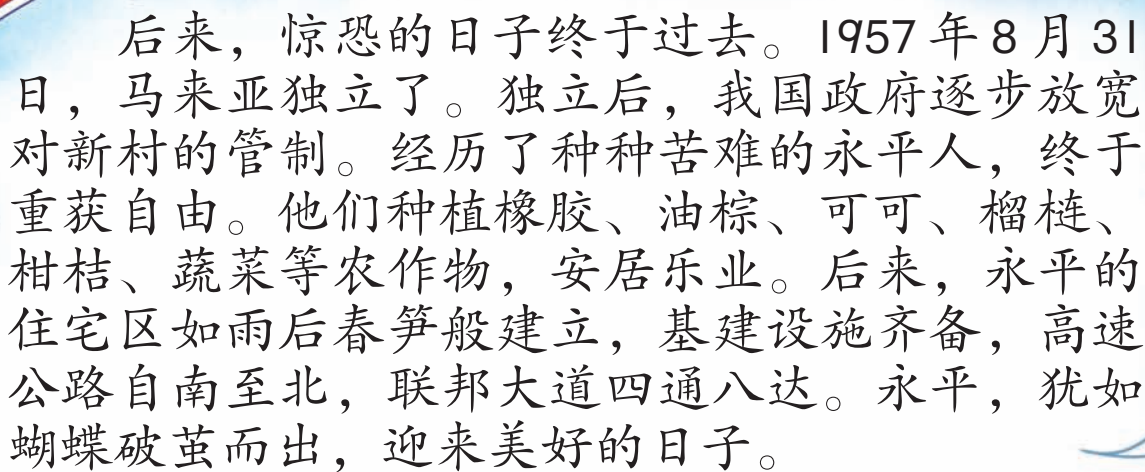 后来，惊恐的日子终于过去。1957 年 8 月 31
日，马来亚独立了。独立后，我国政府逐步放宽
对新村的管制。经历了种种苦难的永平人，终于
重获自由。他们种植橡胶、油棕、可可、榴梿、
柑桔、蔬菜等农作物，安居乐业。后来，永平的
住宅区如雨后春笋般建立，基建设施齐备，高速
公路自南至北，联邦大道四通八达。永平，犹如
蝴蝶破茧而出，迎来美好的日子。